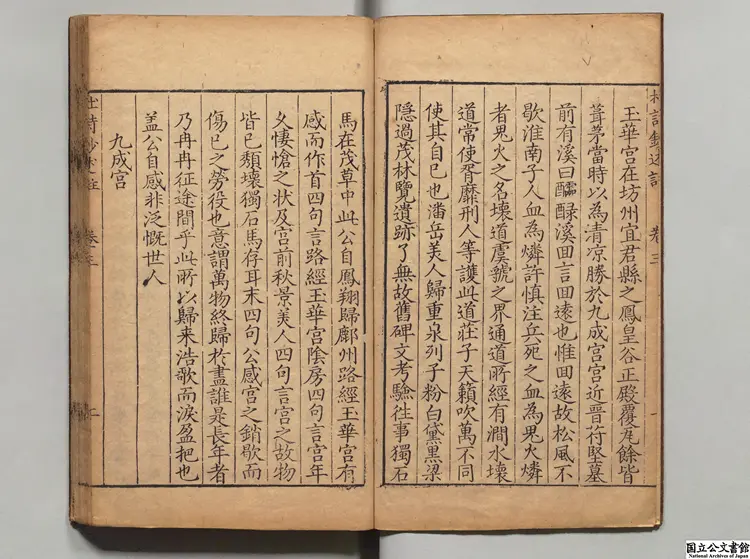 杜詩鈔述註 卷三 一
玉華宮在坊州宜君縣之鳳皇谷正殿覆瓦餘皆
葺茅當時以為清凉勝於九成宮宮近晉苻堅墓
前有溪曰醽醁溪回言回逺也惟回逺故松風不
歇淮南子人血為燐許慎注兵死之血為鬼火燐
者鬼火之名壞道虞虢之界通道所經有澗水壞
道常使胥靡刑人等護此道莊子天籟吹萬不同
使其自已也潘岳美人歸重泉列子粉白黛黒梁
隠過茂林覽遺跡了無故舊碑文考驗徃事獨石
馬在茂草中此公自鳳翔歸鄜州路經玉華宮有
感而作首四句言路經玉華宮隂房四句言宮年
久悽愴之状及宮前秋景美人四句言宮之故物
皆已頽壞獨石馬存耳末四句公感宮之銷歇而
傷已之勞役也意謂萬物終歸於盡誰是長年者
乃冉冉征途間乎此所以歸来浩歌而淚盈把也
盖公自感非泛慨世人
九成宮
卷三
国立公文書館
National Archives of Japan